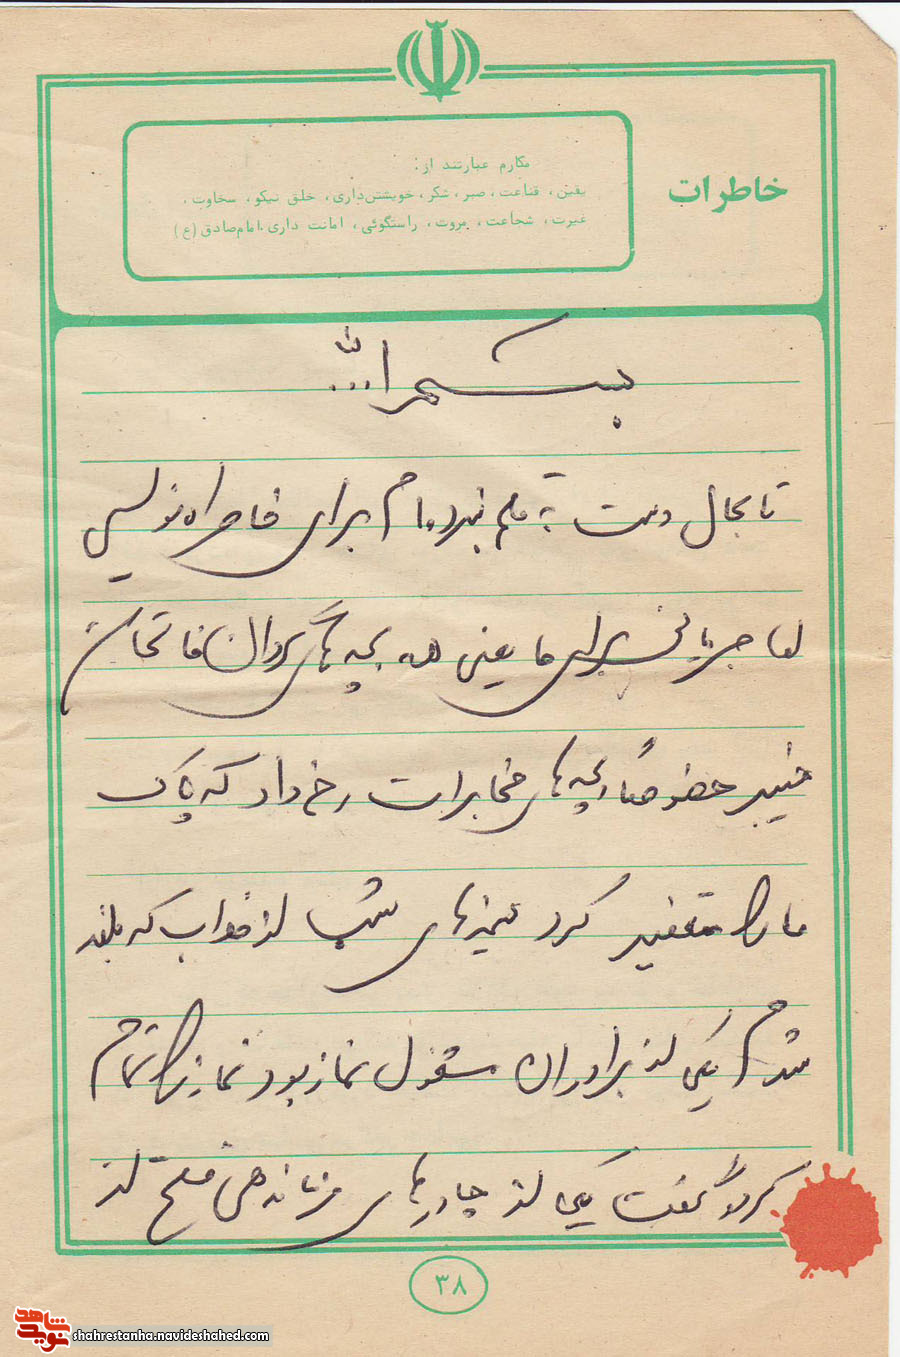 خاطرات
مکارم عبارتند از:
یقین، قناعت، صبر، شکر، خویشتن‌داری، خلق نیکو، سخاوت،
غیرت، شجاعت، مروت، راستگوئی، امانت داری. امام صادق (ع)
بسم الله...
تا بحال دست به قلم نبرده‌ام برای خاطراه نویسی
اما جریانی برای ما یعنی همه بچه های گردان فاتحان
خیبر خصوصاً بچه های مخابرات رخ داد که پاک
ما را متغییر کرد نیمه‌های شب از خواب که بلند
شدم یکی از برادران مشغول نماز بود نماز را تمام
کرد و گفت یکی از چادرهای فرماندهی فتح از
۳۸
شاهد
نوید
shahrestanha.navideshahed.com